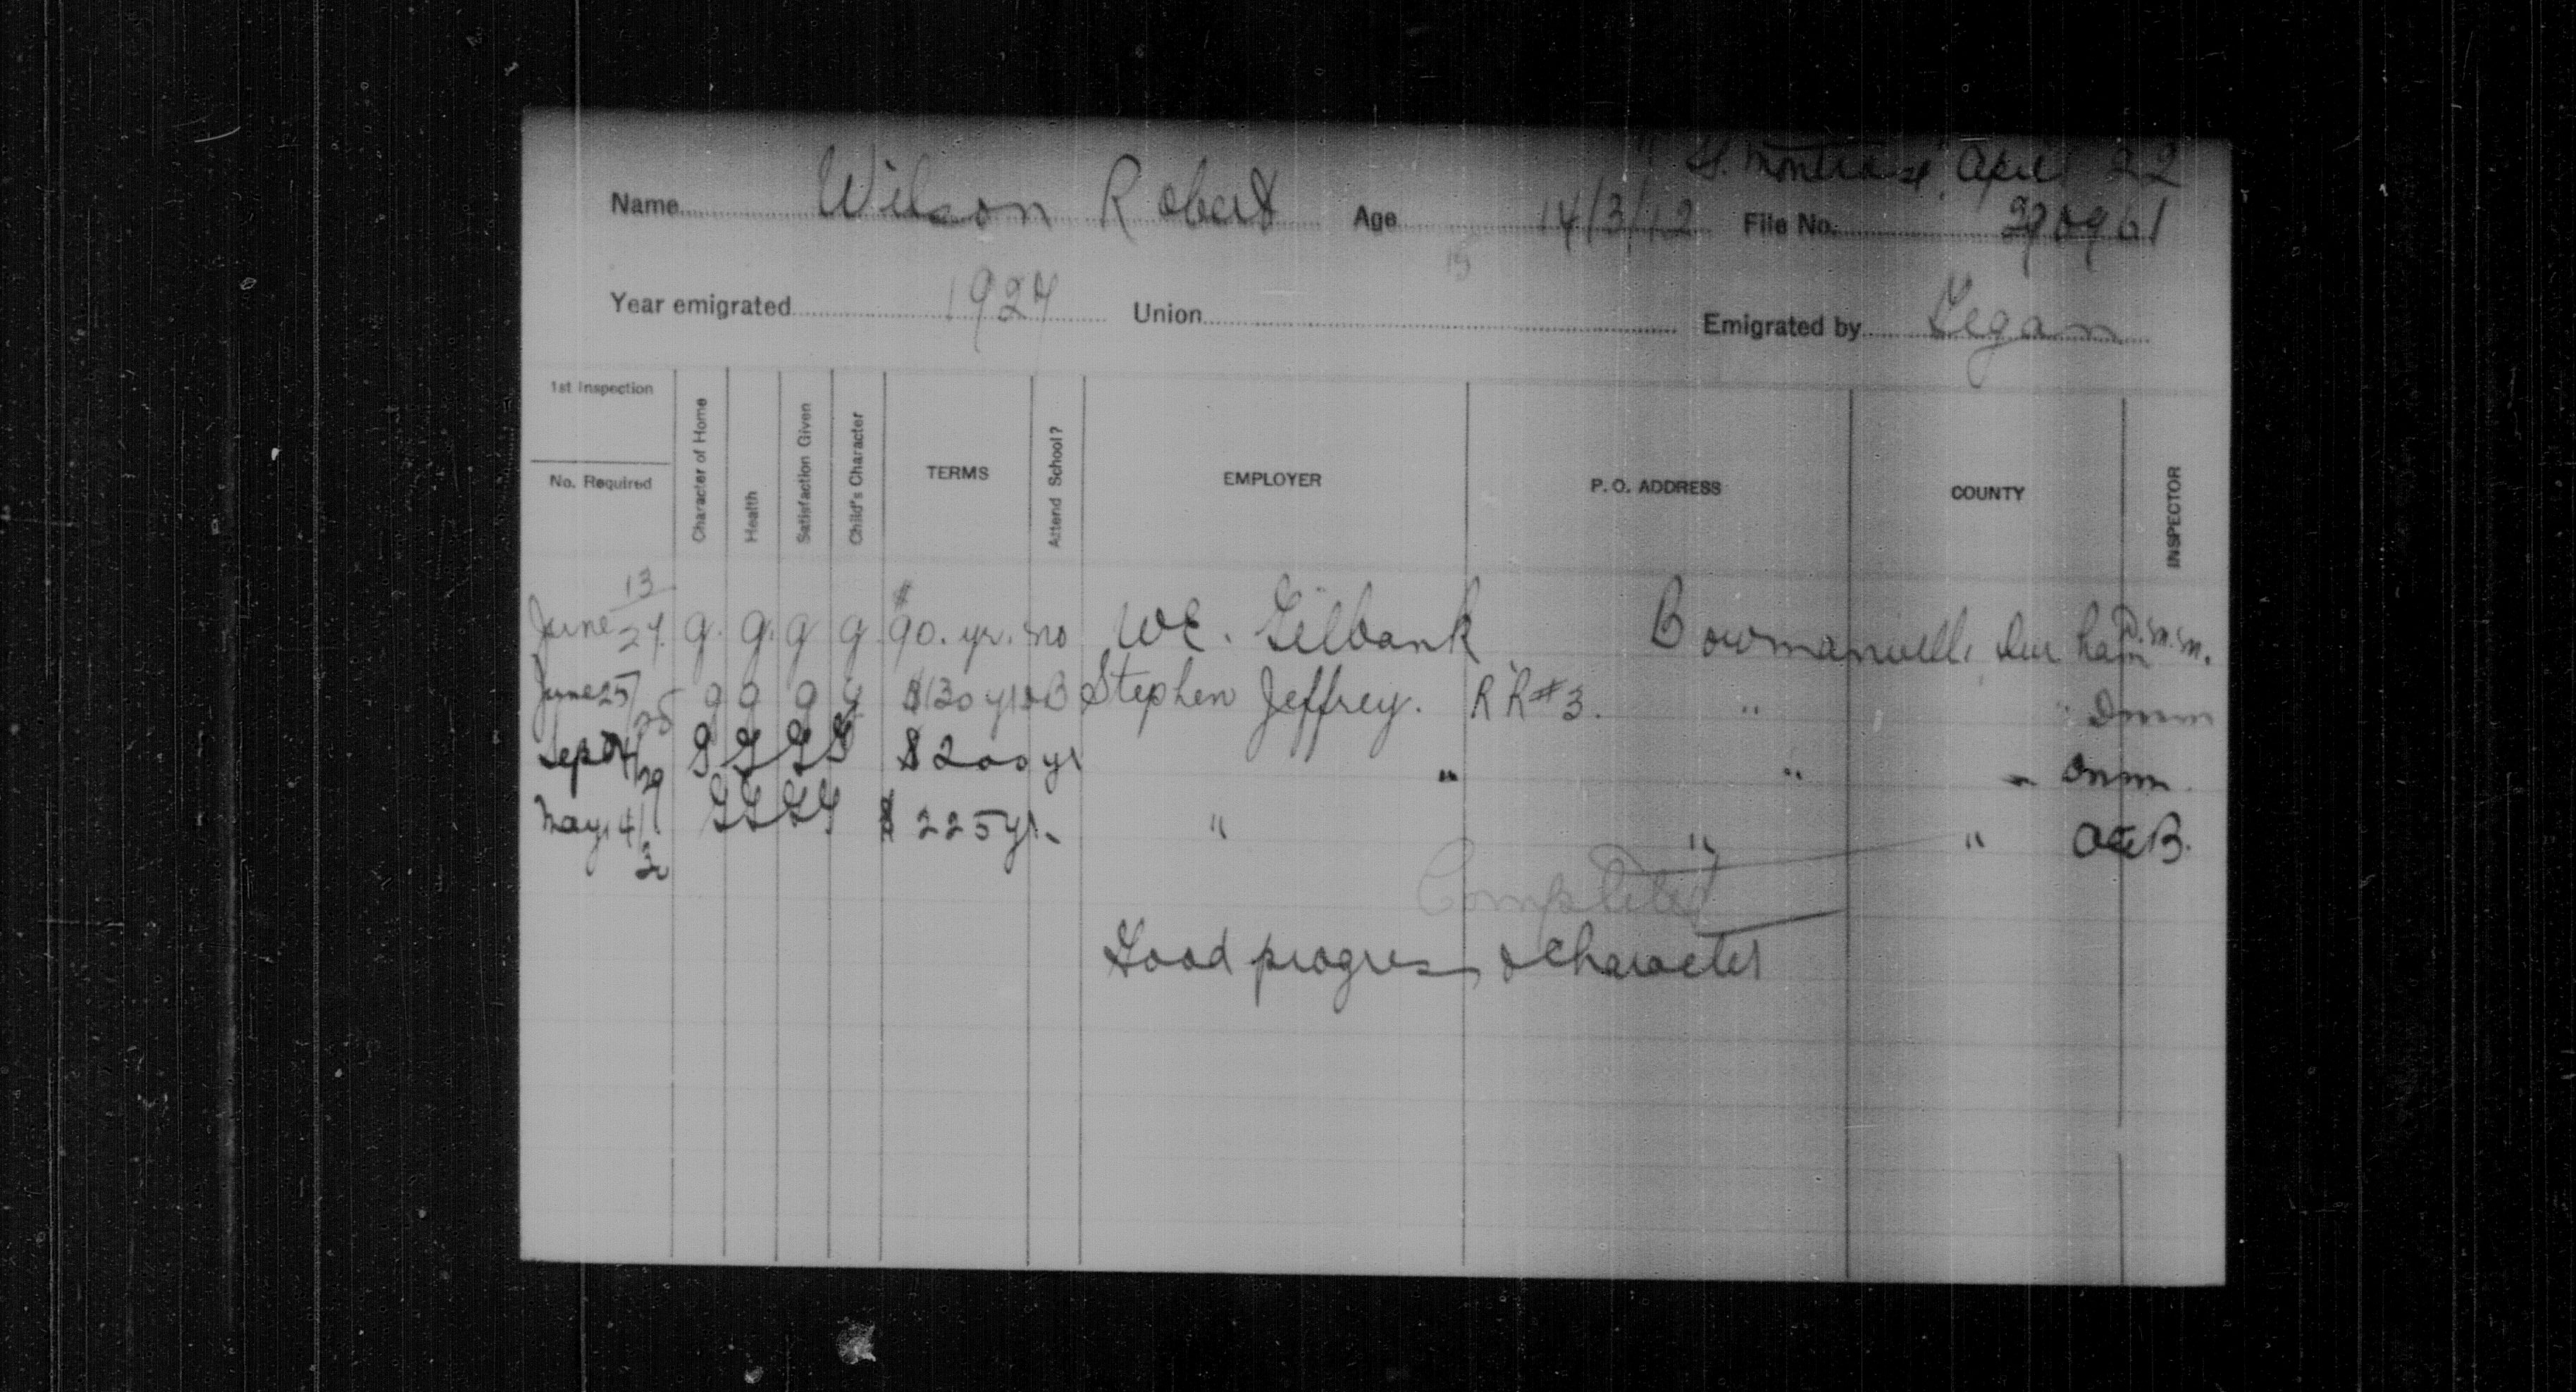 "SS. Montrose" April 22
Name Wilson Robert Age 14/3/12 File No. 390961
15
Year emigrated 1927 Union Emigrated by Fegan
1st Inspection
No. Required Character of Home Health Satisfaction Given Child's Character TERMS Attend School? EMPLOYER P. O. ADDRESS COUNTY INSPECTOR
June 13/27. g. g. g g. $90. yr. no W E. Gilbank Bowmanville Durham D.M.M.
June 25/28 g g g g $130 yr Stephen Jeffrey. RR#3. " " Dmm
Sept 4/29 g g g g $200 yr " " " Dmm.
May 14/30 g g g g $225 yr. " " " B.
Completed
Good progress & character